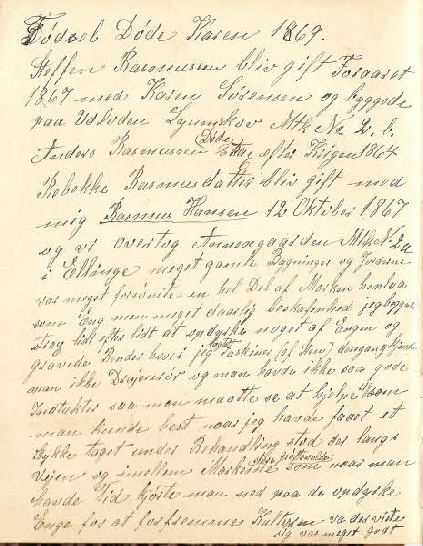 Fødsel Døde Karen 1869.
Steffen Rasmussen bliv gift Foraaret
1867 med Karen Sørensen og byggede
paa Udlodden Lyunskov Mtk No 2. b.
Anders Rasmussen Døde efter Krigen 1864
Rebekke Rasmusdatter bliv gift med
mig Rasmus Hansen 12 Oktober 1867
og vi overtog Annexgaarden Mtk No 2 a
i Eltange meget gamle Bygninger og Jorderne
var meget forsømte en hel Del af Marken henlaa
som Eng men meget daarlig beskafenhed jeg begyn
strag lidt efter lidt at opdyrke noget af Engen og
gravede Render hvori jeg lagte Faskiner (af Skov) dengang kjend
man ikke Drajnrør og man havde ikke saa gode
Jordtækter saa man maatte se at hjelpe som
man kunde best naar jeg havde faaet et
Stykke taget under Behandling stod der langs
Vejen og imellem Markerne store Grøftevolde som naar man
havde Tid kjørte man ned paa de opdyrke
Enge for at forfremme Kulturen og det viste
sig var meget godt